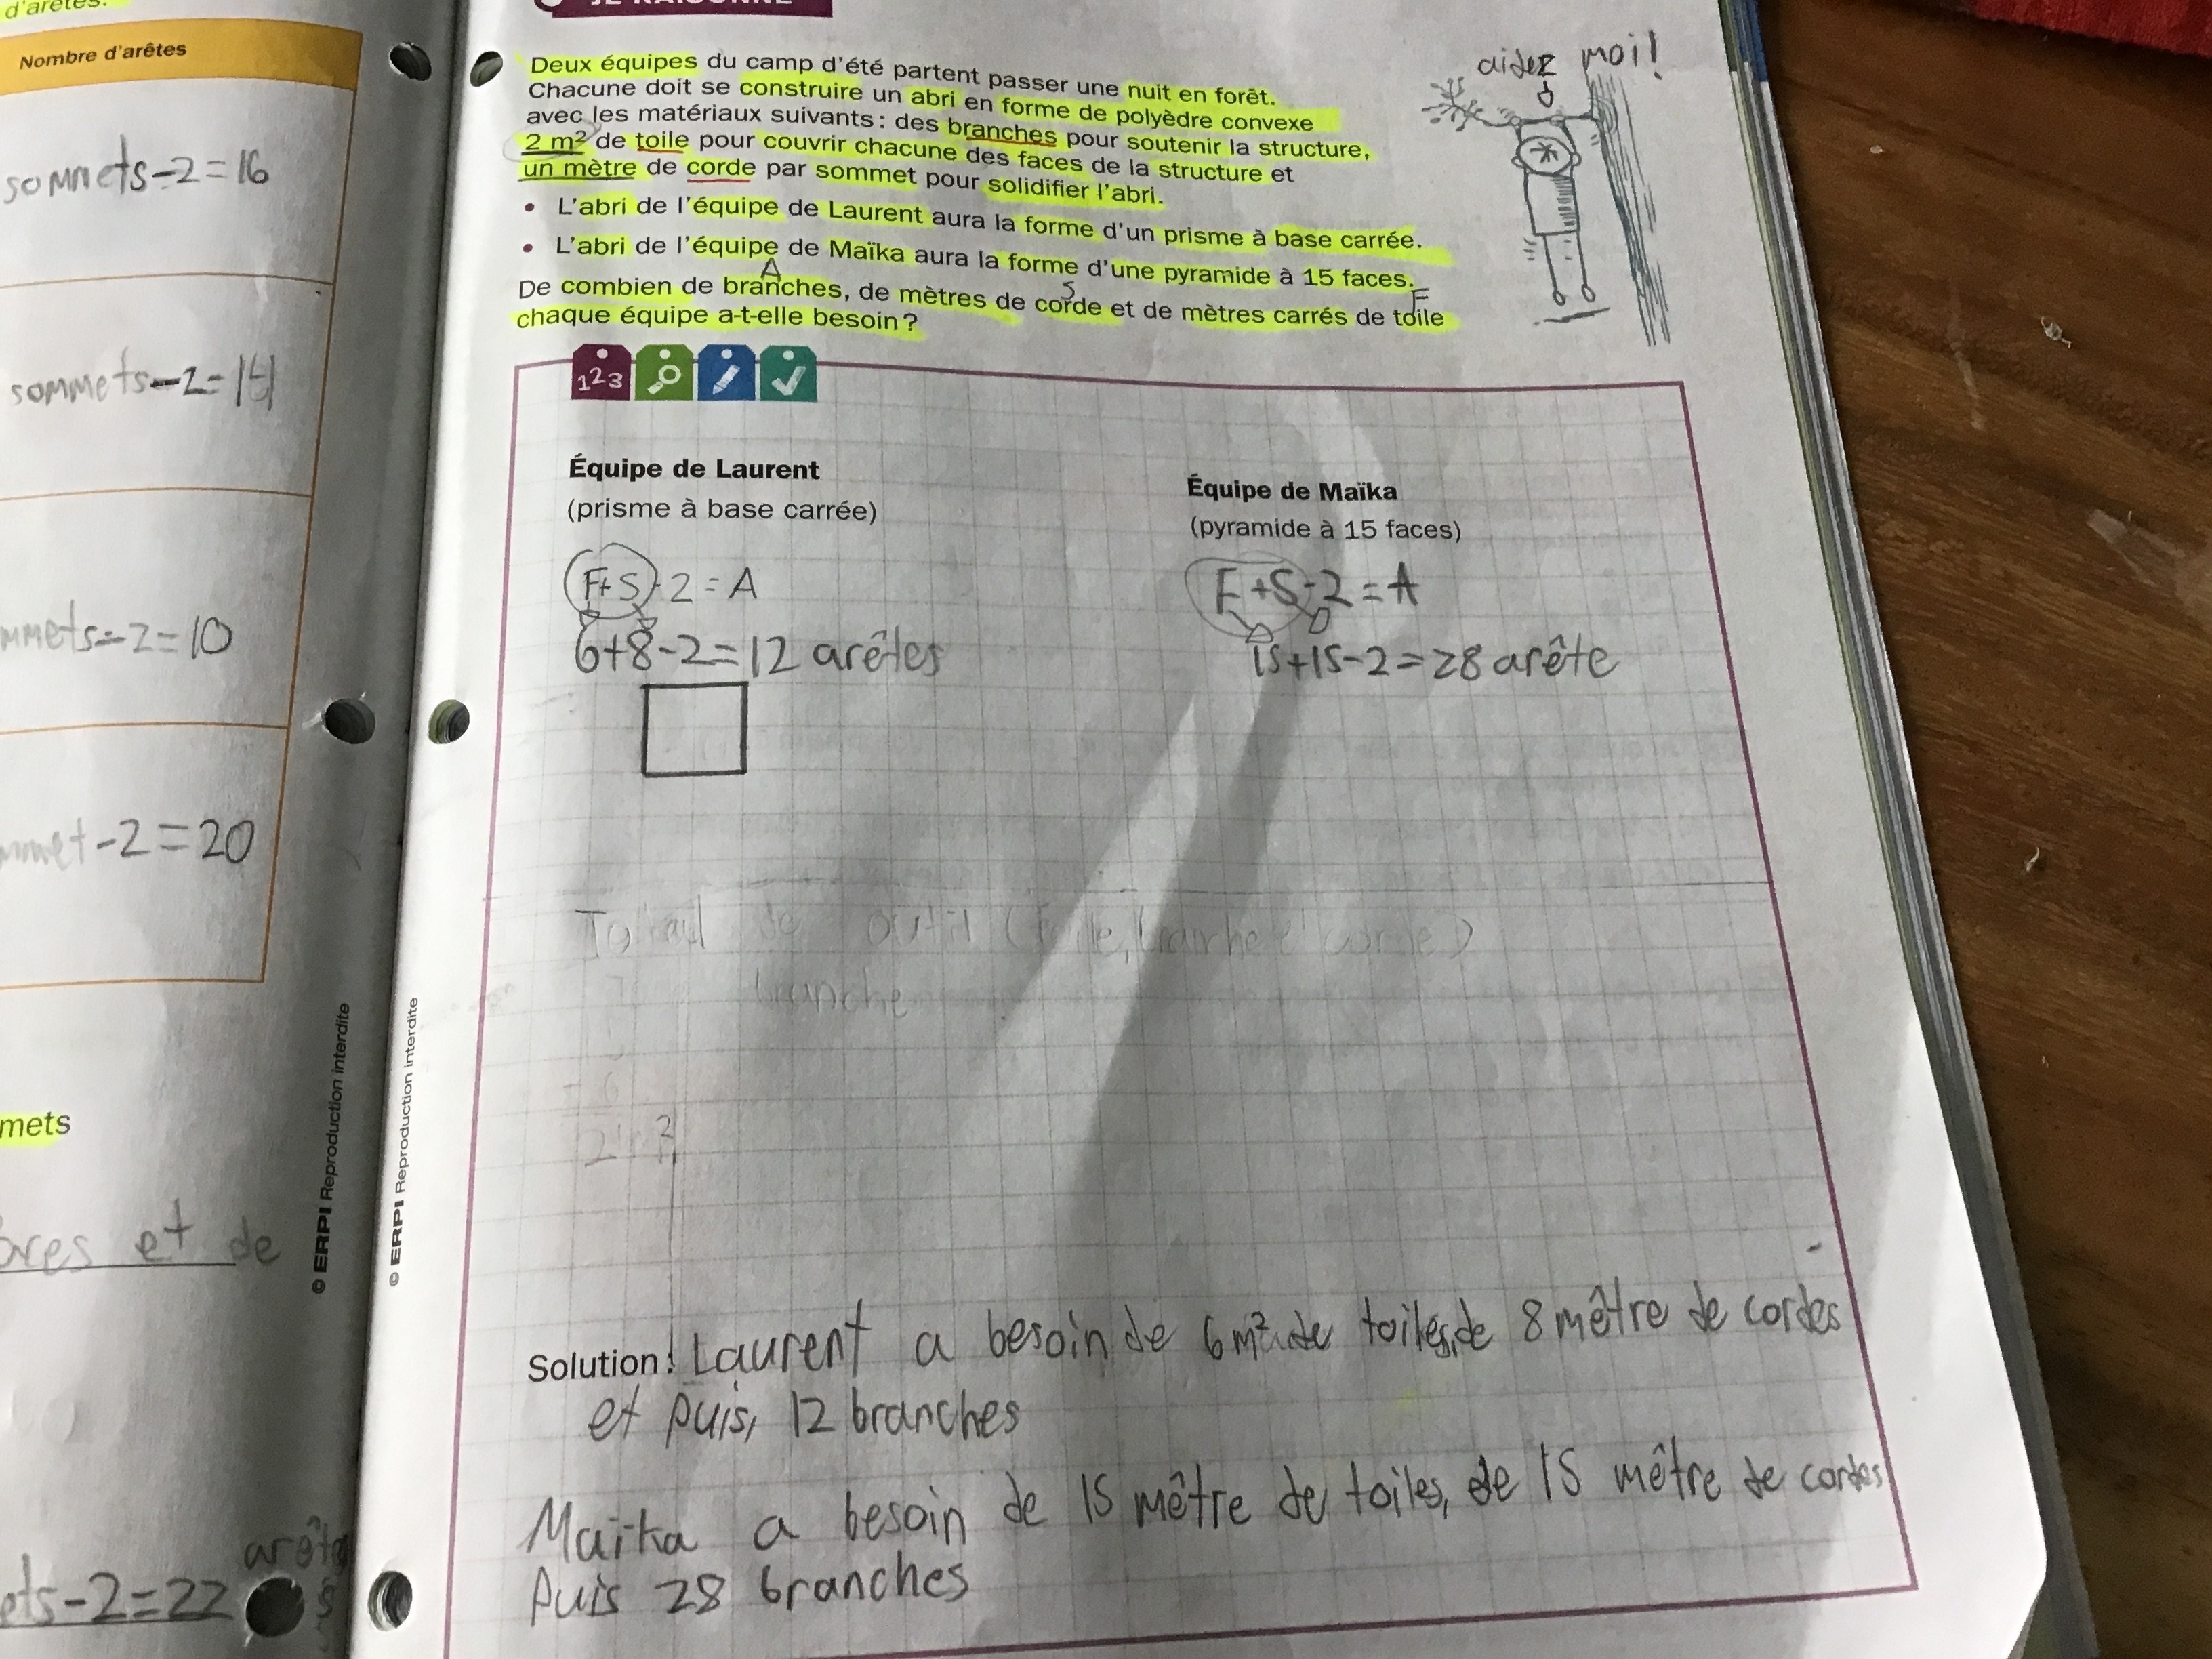 d'arêtes.
Nombre d'arêtes
sommets-2=16
sommets-2=14
mmets-2=10
mmet-2=20
mets
ores et de
arête
ets-2=22
© ERPI Reproduction interdite
© ERPI Reproduction interdite
JE RAISONNE
Deux équipes du camp d'été partent passer une nuit en forêt.
Chacune doit se construire un abri en forme de polyèdre convexe
avec les matériaux suivants : des branches pour soutenir la structure,
2 m² de toile pour couvrir chacune des faces de la structure et
un mètre de corde par sommet pour solidifier l'abri.
• L'abri de l'équipe de Laurent aura la forme d'un prisme à base carrée.
• L'abri de l'équipe de Maïka aura la forme d'une pyramide à 15 faces.
A S F
De combien de branches, de mètres de corde et de mètres carrés de toile
chaque équipe a-t-elle besoin ?
aidez moi!
123
Équipe de Laurent
(prisme à base carrée)
F+S-2=A
6+8-2=12 arêtes
Équipe de Maïka
(pyramide à 15 faces)
F+S-2=A
15+15-2=28 arête
outil (toile, branche
branche
Solution : Laurent a besoin de 6 m² de toiles, de 8 mêtre de cordes
et puis, 12 branches
Maïka a besoin de 15 mêtre de toiles, de 15 mêtre de cordes
Puis 28 branches